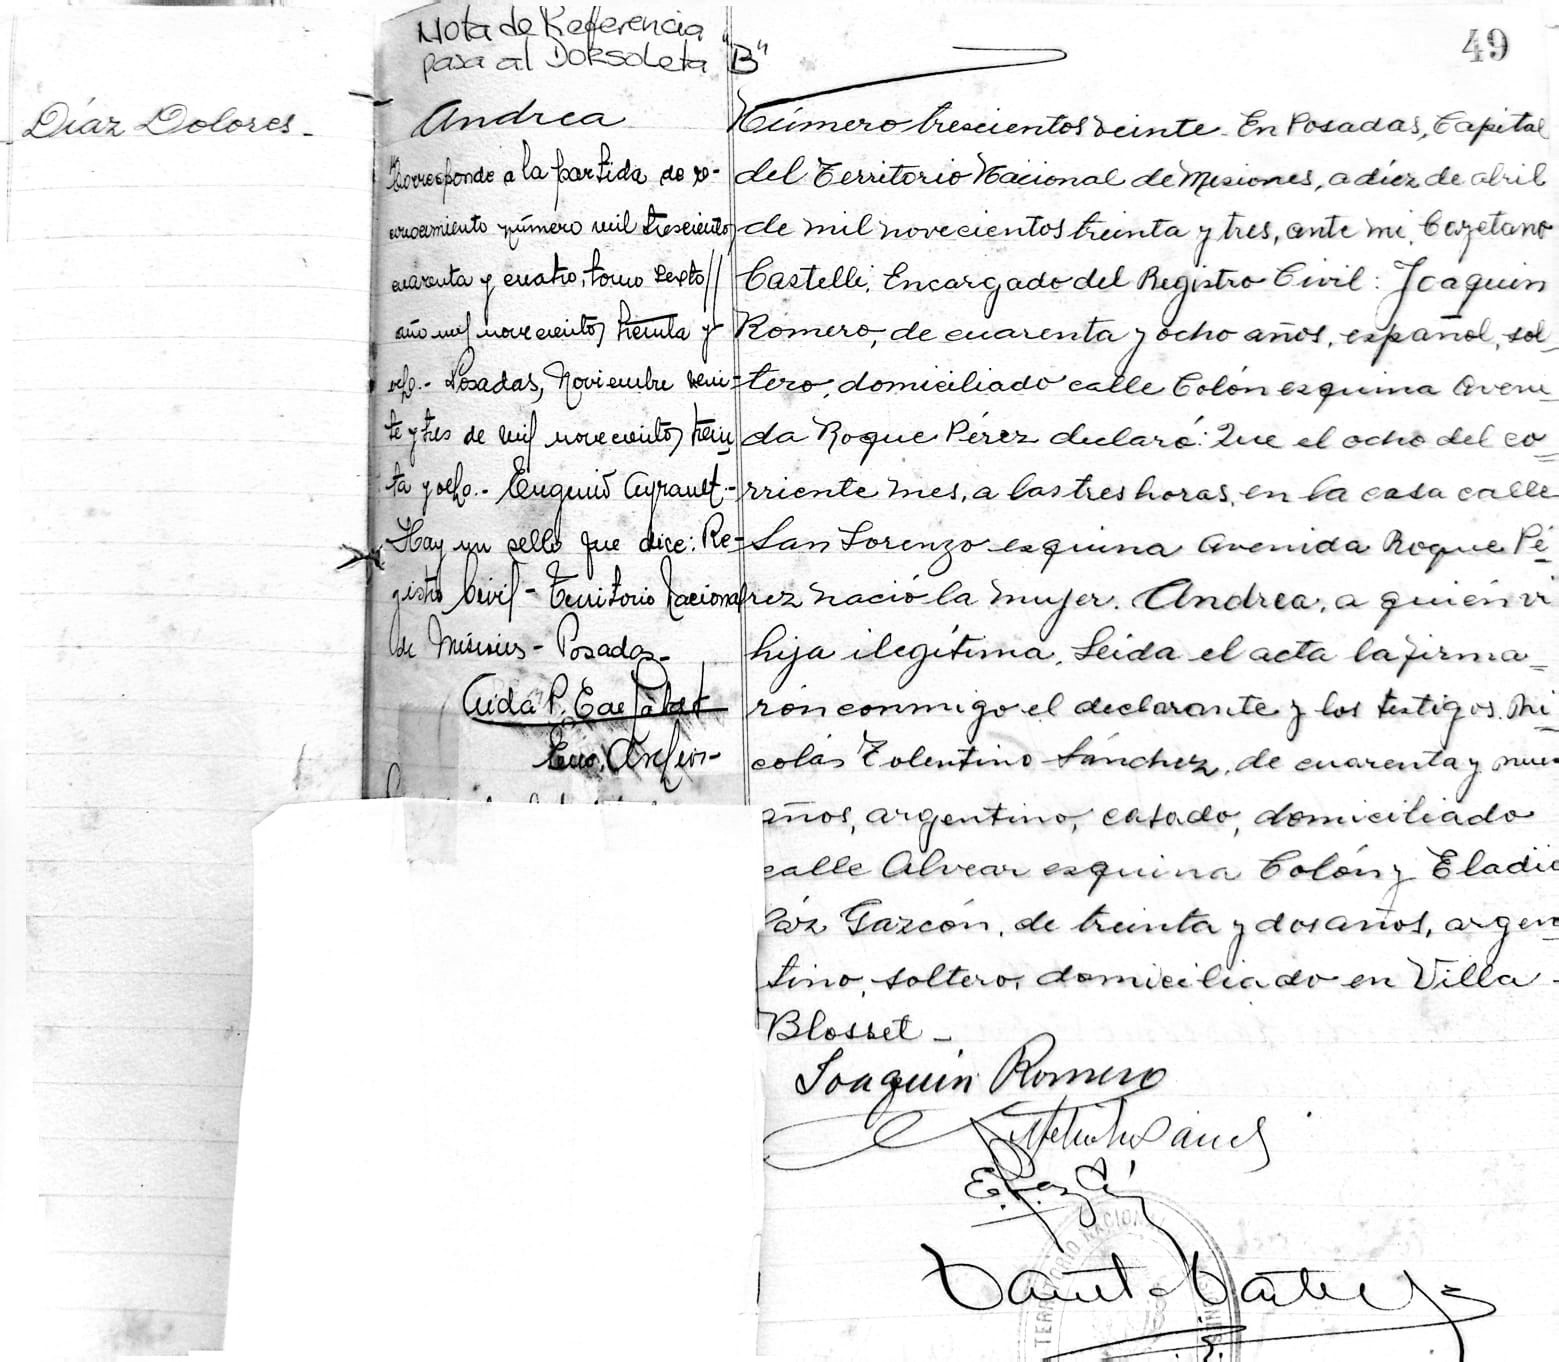 Nota de Referencia
pasa al Dorso Leta "B"
49
Díaz Dolores -
Andrea
Corresponde a la partida de re-
conocimiento número mil trescientos
cuarenta y cuatro, tomo sexto//
año mil novecientos treinta y
ocho.- Posadas, Noviembre vein-
te y tres de mil novecientos trein
ta y ocho.- Eugenio Ayrault.-
Hay un sello que dice: Re-
gistro Civil - Territorio Nacional
de Misiones - Posadas-
Aida P. de
Número trescientos veinte. En Posadas, Capital
del Territorio Nacional de Misiones, a diez de abril
de mil novecientos treinta y tres, ante mi, Cayetano
Castelli, Encargado del Registro Civil: Joaquin
Romero, de cuarenta y ocho años, español, sol-
tero, domiciliado calle Colón esquina Aveni-
da Roque Pérez declaró: Que el ocho del co-
rriente mes, a las tres horas, en la casa calle
San Lorenzo esquina Avenida Roque Pé-
rez nació la mujer. Andrea, a quién vi
hija ilegítima. Leída el acta la firma-
rón conmigo el declarante y los testigos Ni-
colás Tolentino Sánchez, de cuarenta y nue
años, argentino, casado, domiciliado
calle Alvear esquina Colón y Eladio
Páz Gazcón, de treinta y dos años, argen
tino, soltero, domiciliado en Villa -
Blosset -
Joaquin Romero
TERRITORIO NACIONAL